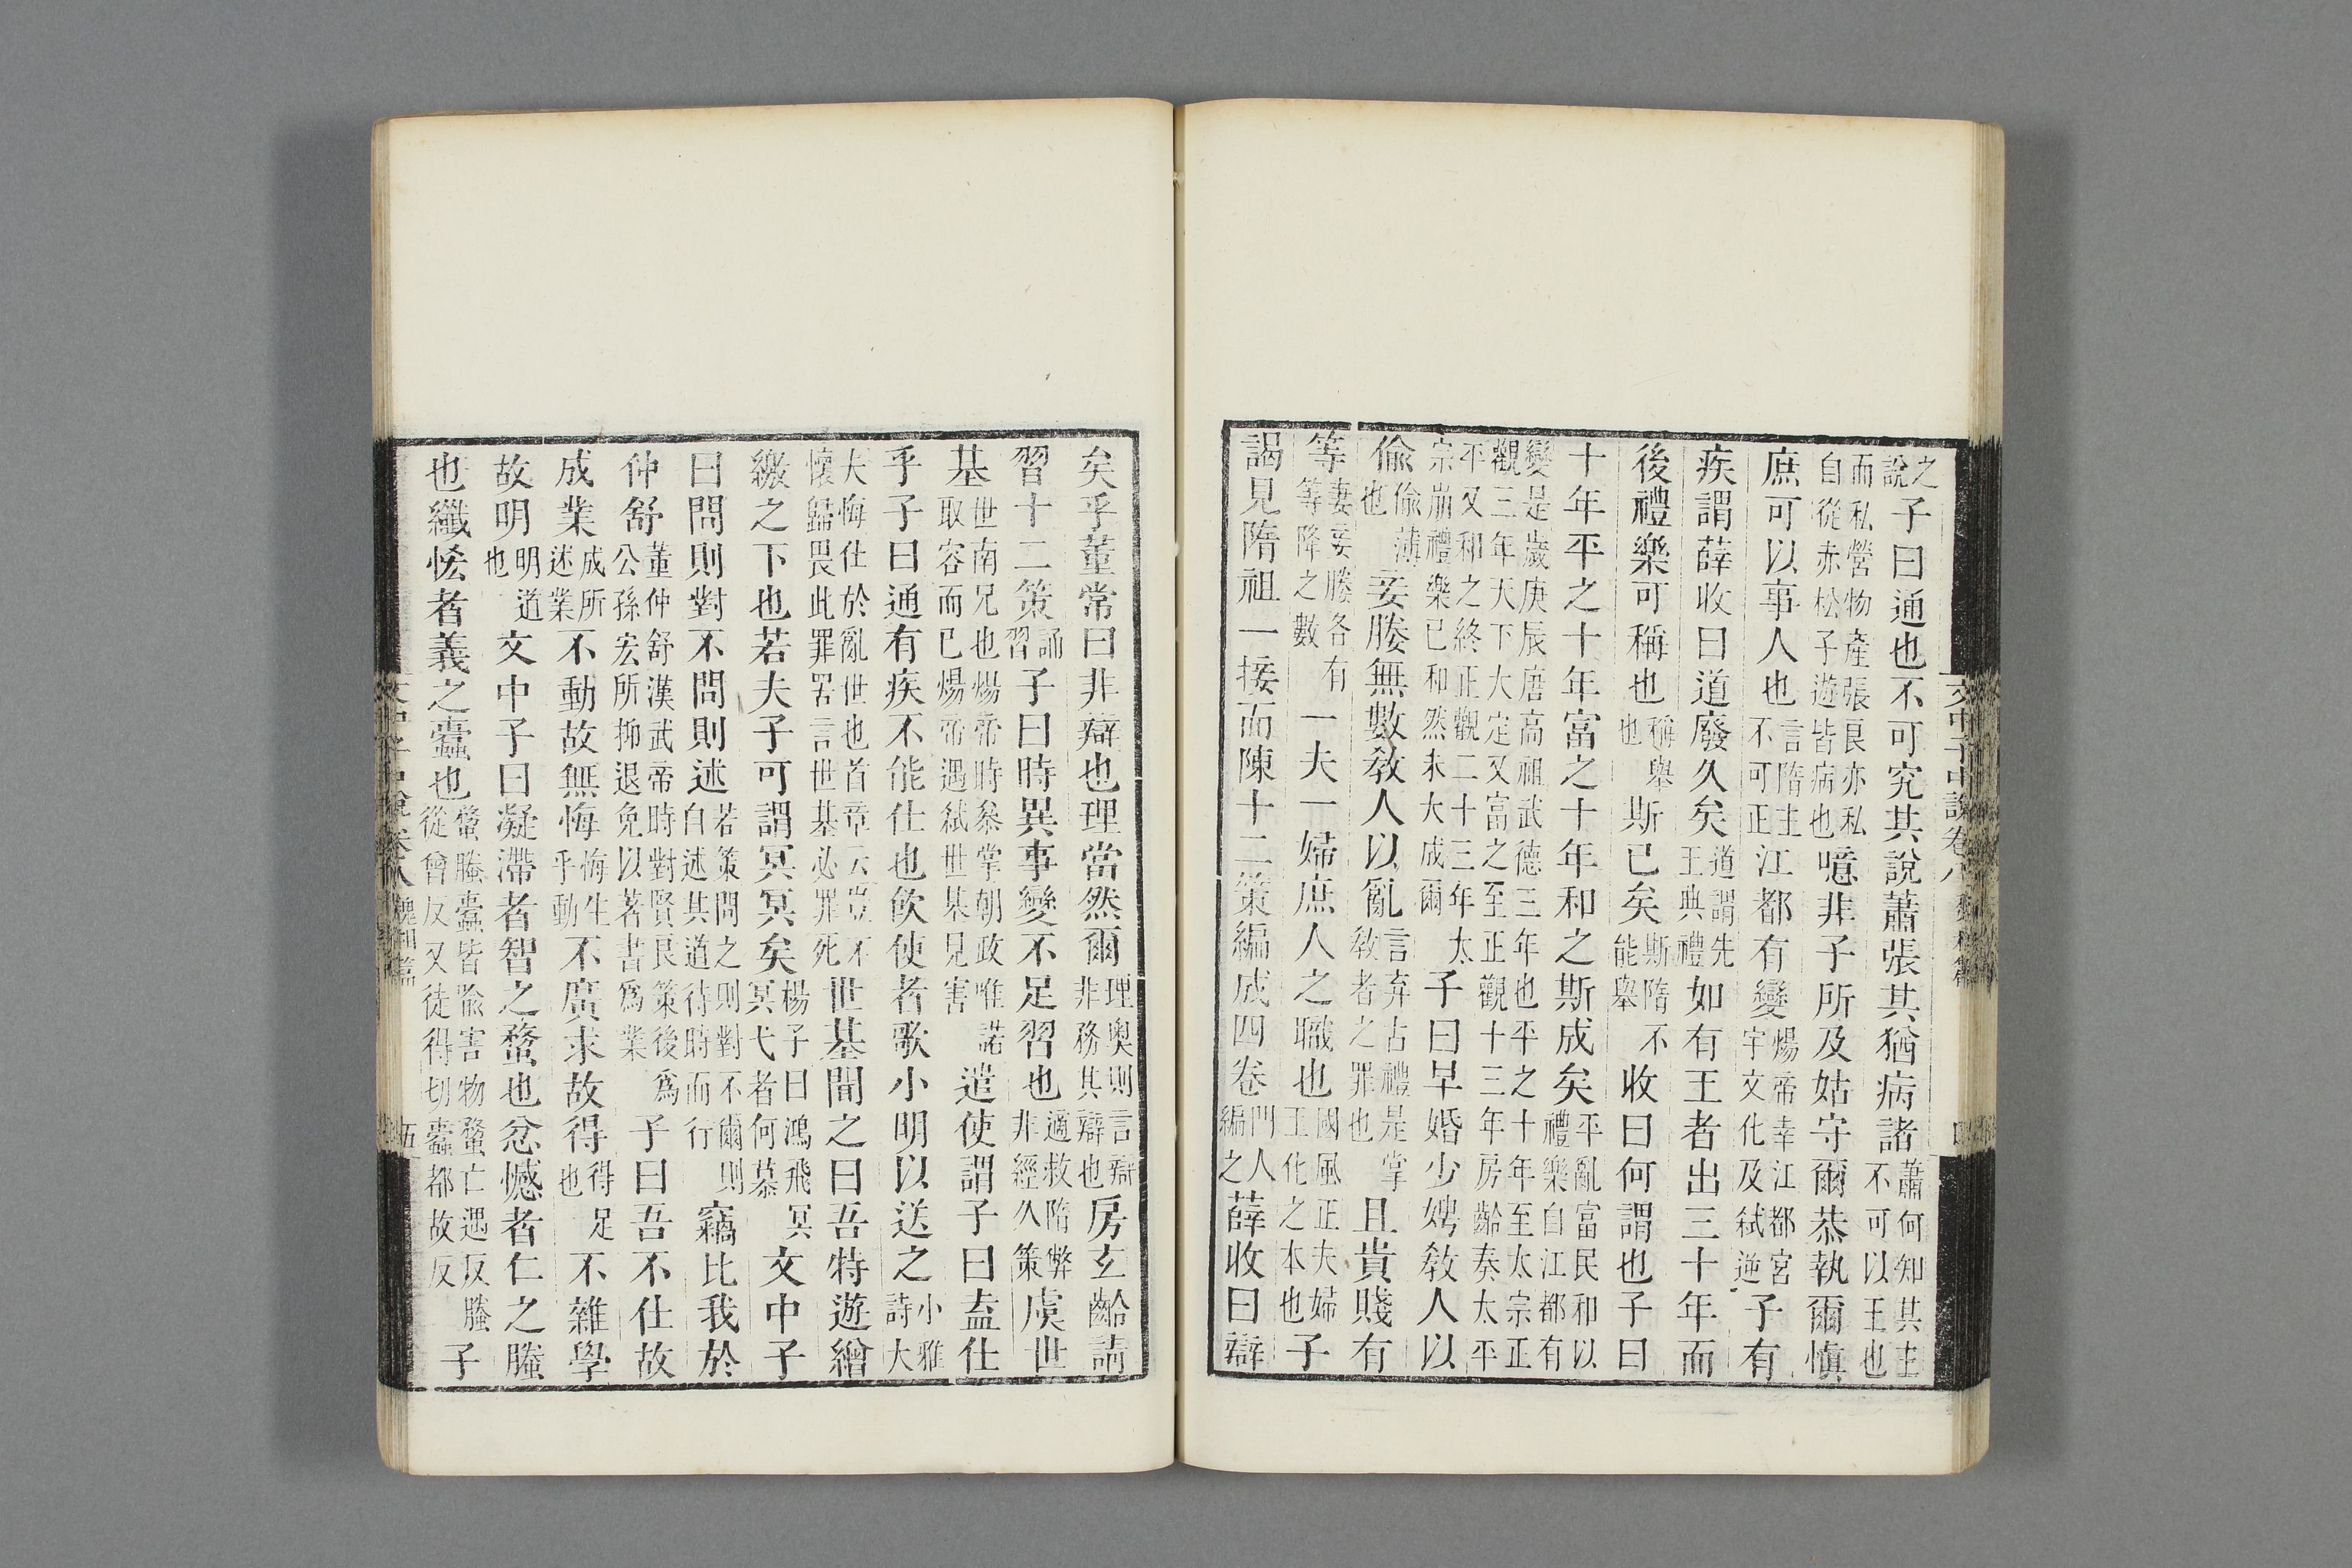 之說子曰通也不可究其說蕭張其猶病諸蕭何知其主不可以王也
而私營物產張良亦私自從赤松子遊皆病也噫非子所及姑守爾恭執爾慎
庶可以事人也言隋主不可正江都有變煬帝幸江都宮宇文化及弒逆子有
疾謂薛收曰道廢久矣道謂先王典禮如有王者出三十年而
後禮樂可稱也稱舉也斯已矣斯隋不能舉收曰何謂也子曰
十年平之十年富之十年和之斯成矣平亂富民和以禮樂自江都有
變是歲庚辰唐高祖武德三年也平之十年至太宗正觀三年天下大定又富之至正觀十三年房齡奏太平
平又和之終正觀二十三年太宗崩禮樂已和然未大成爾子曰早婚少娉教人以
偷偷薄也妾媵無數教人以亂言弃古禮是掌教者之罪也且貴賤有
等妻妾媵各有等降之數一夫一婦庶人之職也國風正夫婦王化之本也子
謁見隋祖一接而陳十二策編成四卷門人編之薛收曰辯
文中子中說卷八
矣乎董常曰非辯也理當然爾理奧則言辯非務其辯也房玄齡請
習十二策誦習子曰時異事變不足習也適救隋弊非經久策虞世
基世南兄也煬帝時叅掌朝政唯諾取容而已煬帝遇弒世基見害遣使謂子曰盍仕
乎子曰通有疾不能仕也飲使者歌小明以送之小雅詩大
大悔仕於亂世也首章云豈不懷歸畏此罪罟言世基必罪死世基聞之曰吾特遊繒
繳之下也若夫子可謂冥冥矣楊子曰鴻飛冥冥弋者何慕文中子
曰問則對不問則述若策問之則對不爾則自述其道待時而行竊比我於
仲舒董仲舒漢武帝時對賢良策後爲公孫宏所抑退免以著書爲業子曰吾不仕故
成業成所述業不動故無悔悔生乎動不廣求故得得足也不雜學
故明明道也文中子曰凝滯者智之蝥也忿憾者仁之螣
也纖悋者義之蠹也螫螣蠹皆喻害物蝥亡遇反螣從曾反又徒得切蠹都故反子
文中子中說卷八 魏相篇 五